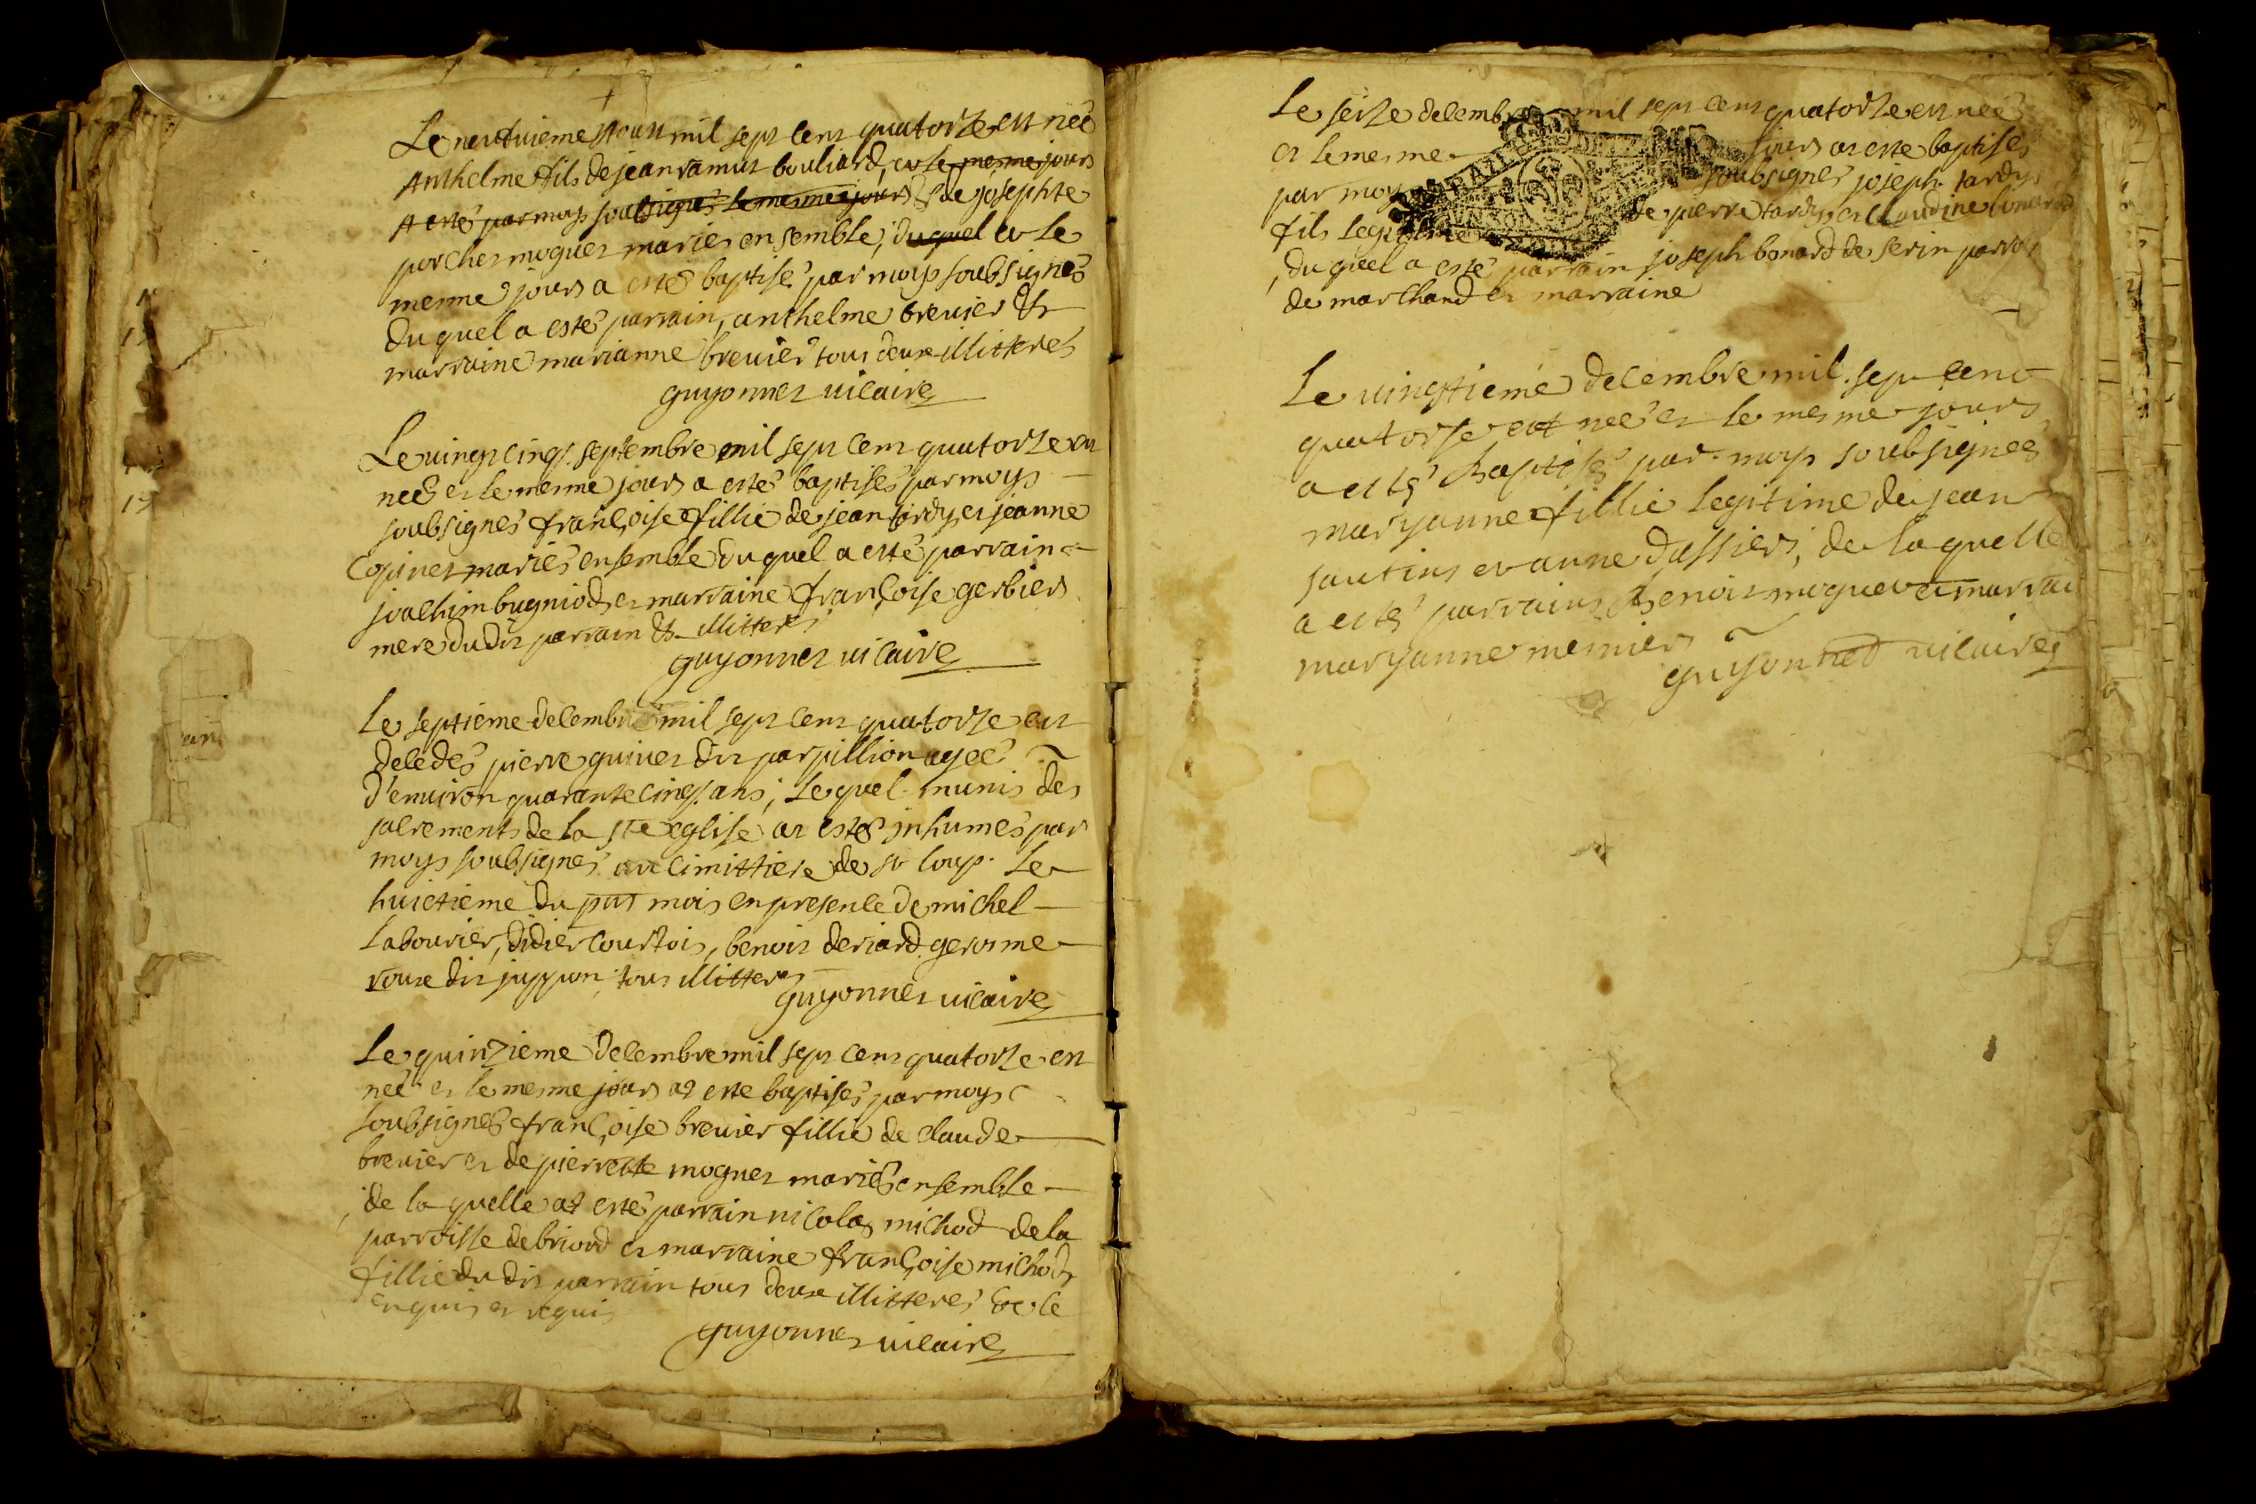 Le neufvieme Aoust mil sept cent quatorze est née
Anthelme fils de jean ramus bouliard, et le mesme jours
A esté par moys soubsignés le mesme jours & de josephte
porcher moguet mariés ensemble, duquel et le
mesme jours a estés baptisé par moys soubsignés
duquel a estés parrain, anthelme brevier &
marraine marianne brevier tous deux illitterés
guyonnet vicaire
Le vingt cinq. septembre mil sept cent quatorze est
neé et le mesme jours a estés baptisés par moys
soubsignés françoise fillie de jean tardy et jeanne
Copinet mariés ensemble duquel a esté parrain
joachim bugniod et marraine françoise gerbier
mere dudit parrain & illitterés
guyonnet vicaire
Le septieme decembre mil sept cent quatorze est
decedés pierre guinet dit parpillion ageé
d'environ quarante cinq. ans, Lequel munis des
sacrements de la Ste eglise at estés inhumés par
moys soubsignés au cimittiere de st loup. Le
huictieme du pnt mois en presence de michel
Labourier, didier courtois, benoit deriard gerosme
roux dit juppon, tous illitterés
guyonnet vicaire
Le quinzieme decembre mil sept cent quatorze est
neé et le mesme jours at esté baptisés par moys
soubsignés françoise brevier fillie de claude
brevier et de pierrette moguet mariés ensemble
de la quelle at estés parrain nicolas michod de la
parroisse de briord et marraine françoise michod
fillie du dit parrain tous deux illitterés de ce
enquis et requis
guyonnet vicaire
Le seize decembre mil sept cent quatorze est neé
et le mesme jours at esté baptisés
par moy soubsignés joseph tardy
fils legitime de pierre tardy et claudine bonard
du quel a estés parrain joseph bonard de serin parroi
de marchand et marraine
Le vingtieme decembre mil sept cent
quatorse est neé et le mesme jours
a estés Baptisés par moys soubsignés
maryanne fillie legitime de jean
sautin et anne dassier, de laquelle
a estés parrain Benoit moguet et marrai
maryanne mermier
guyonnet vicaire